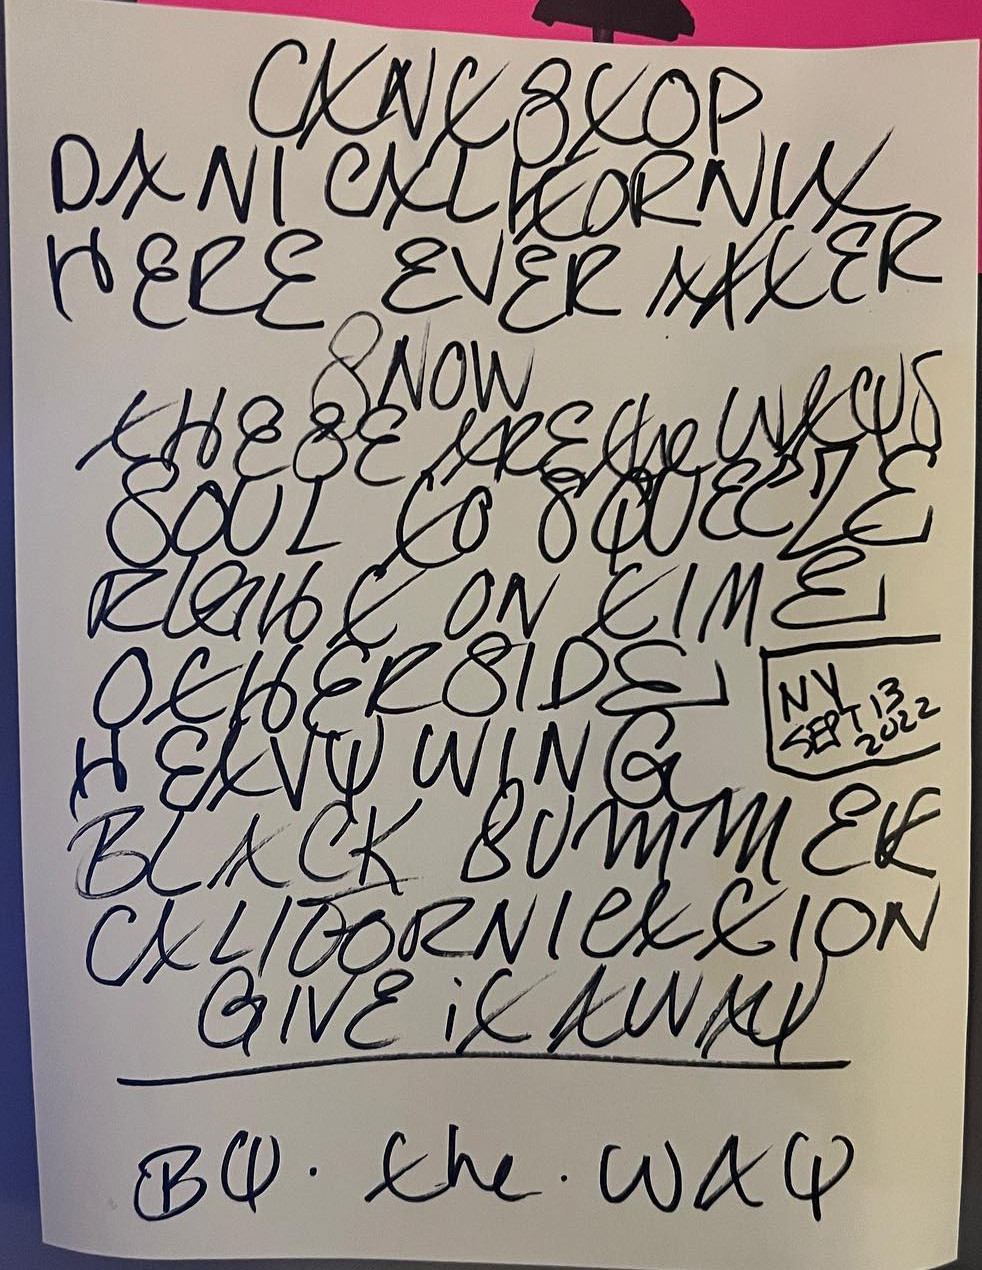 CAN'T STOP
DANI CALIFORNIA
HERE EVER AFTER
SNOW
THESE ARE the WAYS
SOUL TO SQUEEZE
RIGHT ON TIME
OTHERSIDE
NY
SEPT 13
2022
HEAVY WING
BLACK SUMMER
CALIFORNICATION
GIVE iT AWAY
BY. the. WAY